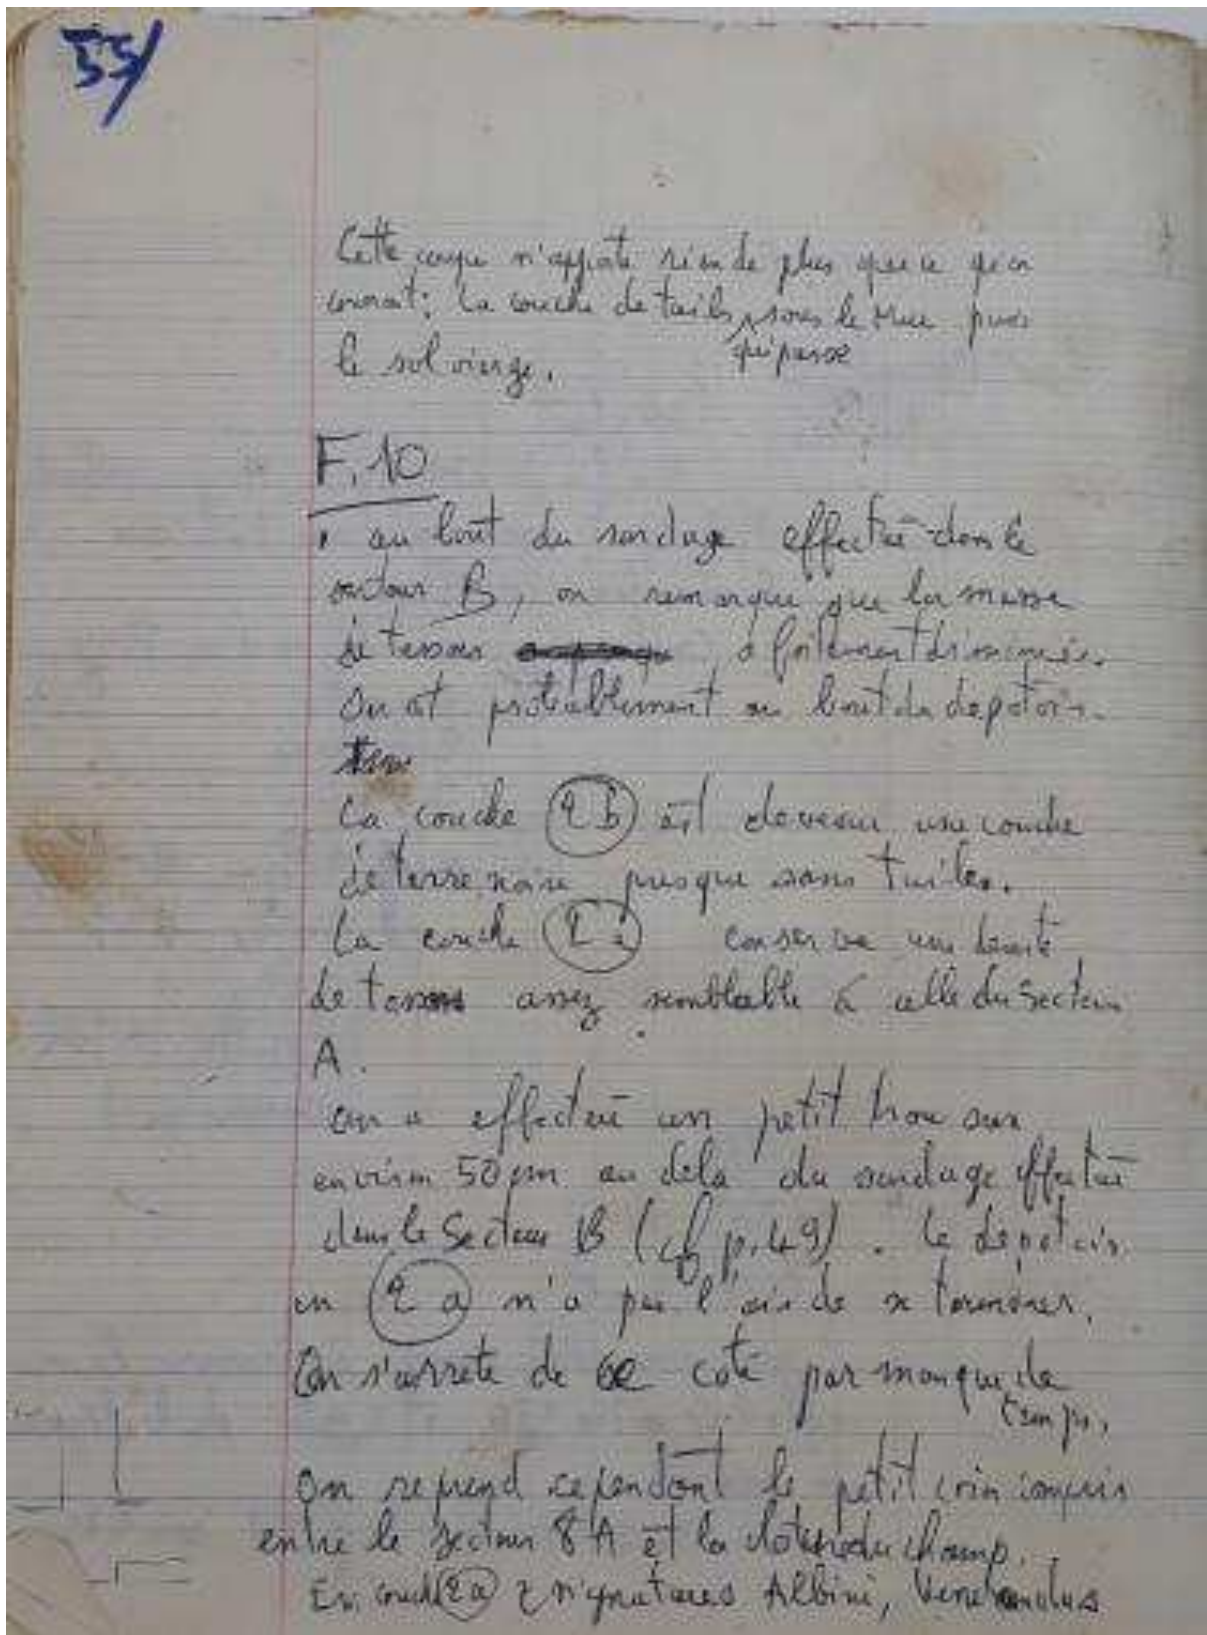 55/
Cette coupe n'apporte rien de plus que ce qu'on
connait: la couche de tuiles, sous le mur puis
qui passe
le sol vierge.
F. 10
au bout du sondage effectué dans le
secteur B, on remarque que la masse
de tessons a fortement diminué.
On est probablement au bout du dépotoir.
La couche 2b est devenu une couche
de terre noire presque sans tuiles.
La couche 2a conserve une densité
de tessons assez semblable à celle du secteur
A.
on a effectué un petit trou sur
environ 50 cm au delà du sondage effectué
dans le Secteur B (cf p. 49). Le dépotoir
en 2a n'a pas l'air de se terminer.
On s'arrete de ce coté par manque de
temps.
On reprend cependant le petit coin compris
entre le secteur 8A et la cloture du champ.
En couche 2a 2 signatures Albini,